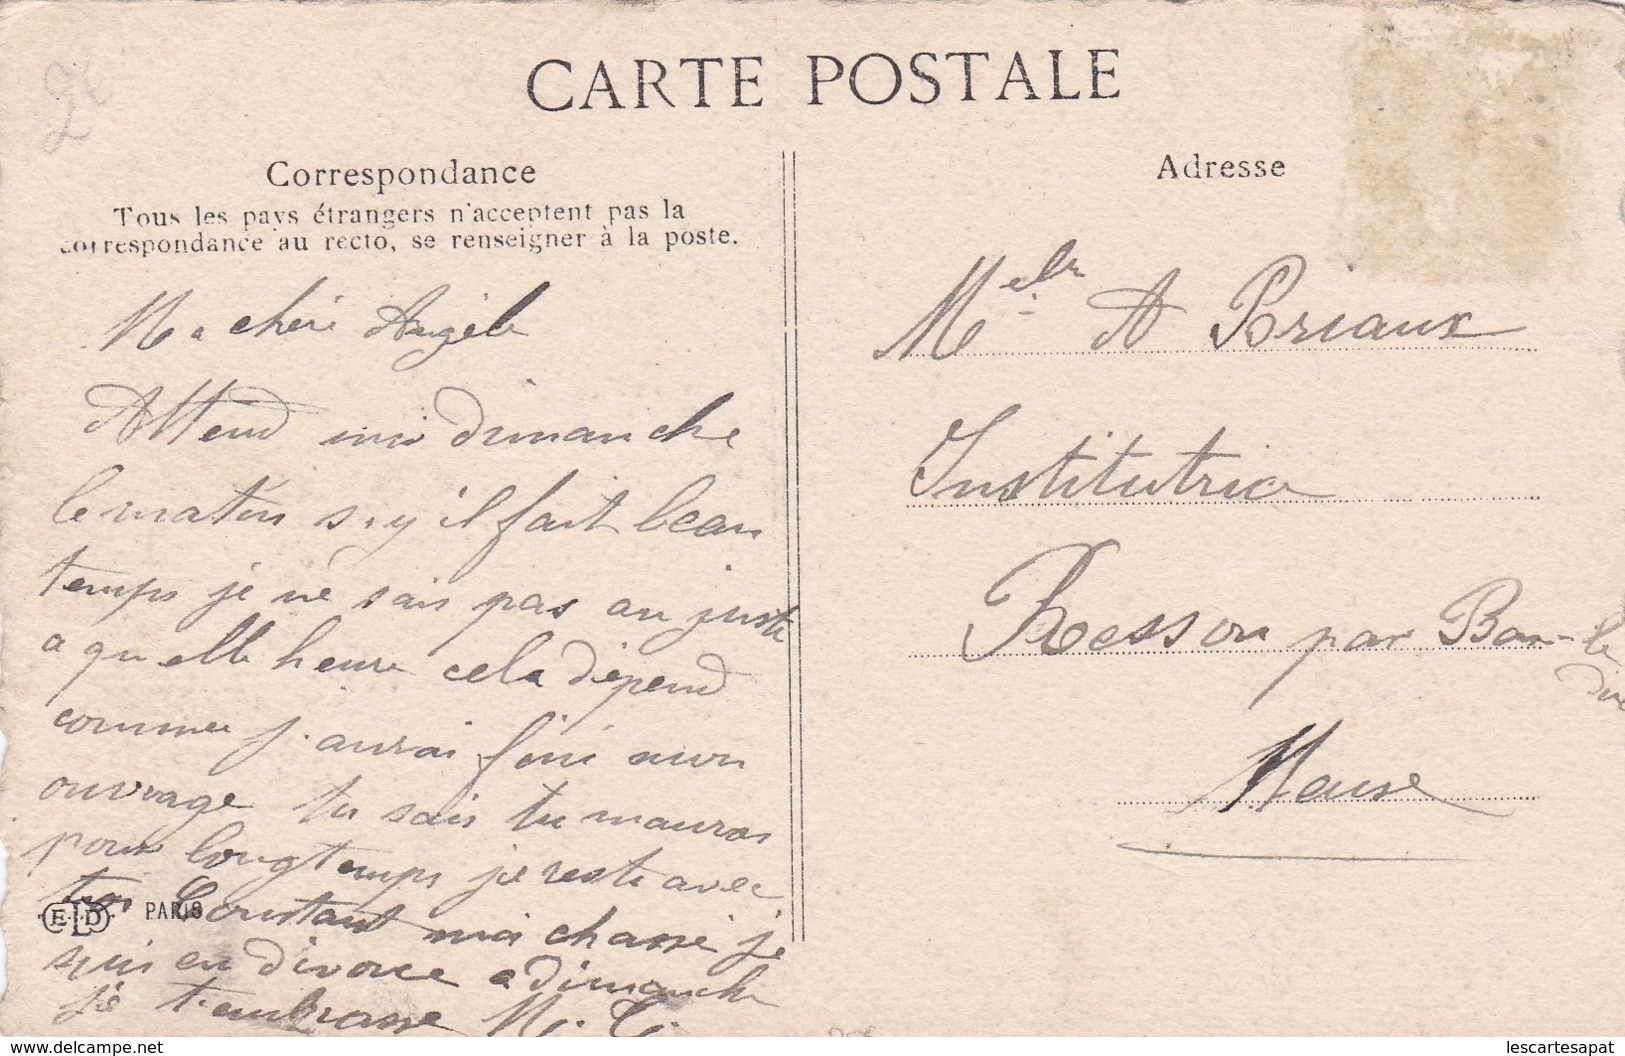 2€
CARTE POSTALE
Correspondance
Tous les pays étrangers n'acceptent pas la
correspondance au recto, se renseigner à la poste.
Ma chéri Angèle
Attend moi dimanche
le matin s.y il fait beau
temps je ne sais pas au juste
a quelle heure cela dépend
comme j.aurai fini mon
ouvrage tu sais tu mauras
pour longtemps je reste avec
toi Constant moi chassé je
suis en divorce a dimanche
je t.embrasse M. C.
ELD PARIS
Adresse
Melle A Briaux
Institutrice
Resson par Bar-le
duc
Meuse
lescartesapat